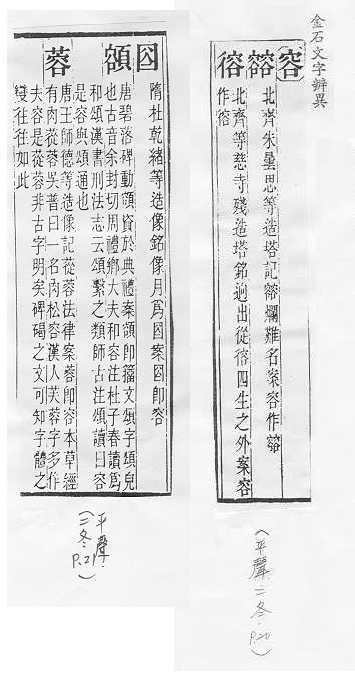 金石文字辨異
容
䈶 㣑
北齊朱曇思等造塔記䈶爛難名案容作䈶
北齊等慈寺殘造塔銘逈出從㣑四生之外案容
作㣑
(平聲二冬 P.20)
囙
隋杜乾緒等造像銘像月爲囙案囙卽容
頟
唐碧落碑動頟資於典禮案頟卽籀文頌字頌皃
也古音余封切周禮鄉大夫和容注杜子春讀爲
和頌漢書刑法志云頌繫之類師古注頌讀曰容
是容與頌通也
蓉
唐王師德等造像記蓯蓉法律案蓉卽容本草經
有肉蓯蓉吳普曰一名肉松容漢人芙蓉字多作
夫容是蓯蓉非古字明矣碑碣之文可知字體之
變往往如此
(平聲 二冬 P.21)